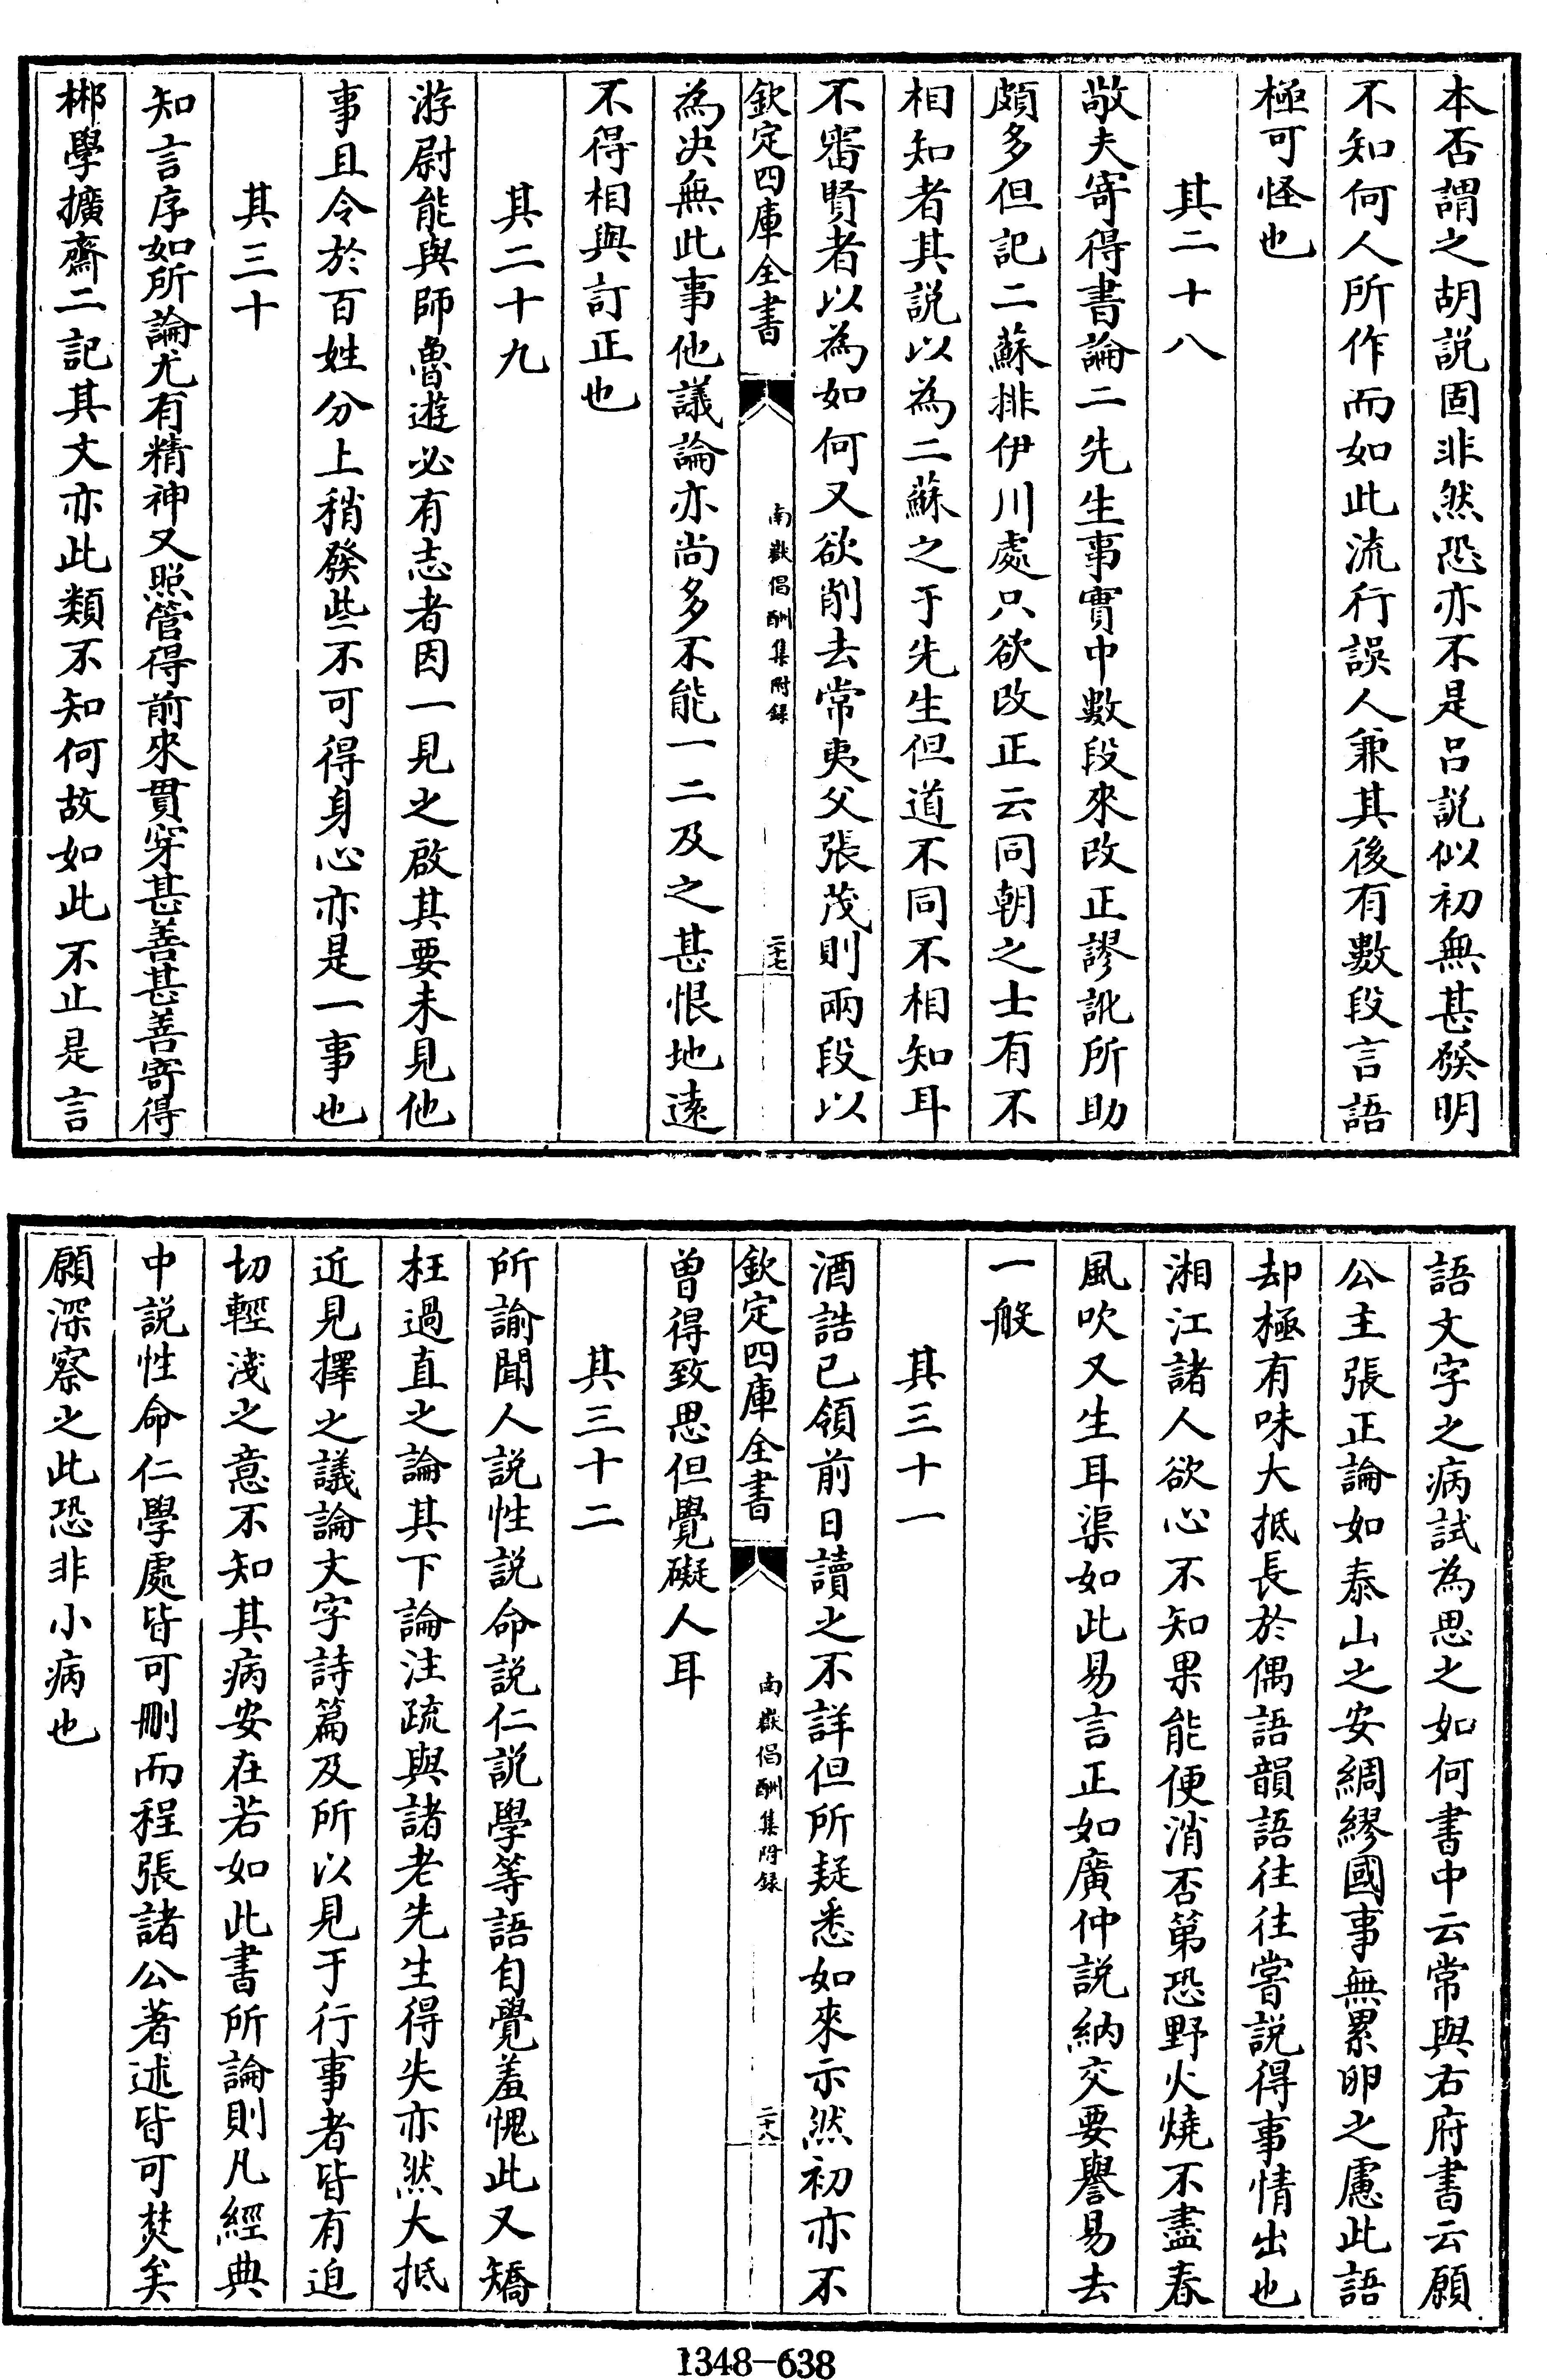 本否謂之胡説固非然恐亦不是吕説似初無甚發明
不知何人所作而如此流行誤人兼其後有數段言語
極可怪也
其二十八
敬夫寄得書論二先生事實中數段來改正謬訛所助
頗多但記二蘇排伊川處只欲改正云同朝之士有不
相知者其説以為二蘇之于先生但道不同不相知耳
不審賢者以為如何又欲削去常夷父張茂則兩段以
欽定四庫全書
南嶽倡酬集附録
二十七
為决無此事他議論亦尚多不能一二及之甚恨地遠
不得相與訂正也
其二十九
游尉能與師魯遊必有志者因一見之啟其要未見他
事且令於百姓分上稍發些不可得身心亦是一事也
其三十
知言序如所論尤有精神又照管得前來貫穿甚善甚善寄得
郴學擴齋二記其文亦此類不知何故如此不止是言
語文字之病試為思之如何書中云常與右府書云願
公主張正論如泰山之安綢繆國事無累卵之慮此語
却極有味大抵長於偶語韻語往往嘗説得事情出也
湘江諸人欲心不知果能便消否第恐野火燒不盡春
風吹又生耳渠如此易言正如廣仲説納交要譽易去
一般
其三十一
酒誥已領前日讀之不詳但所疑悉如來示然初亦不
欽定四庫全書
南嶽倡酬集附録
二十八
曾得致思但覺礙人耳
其三十二
所諭聞人説性説命説仁説學等語自覺羞愧此又矯
枉過直之論其下論注疏與諸老先生得失亦然大抵
近見擇之議論文字詩篇及所以見于行事者皆有迫
切輕淺之意不知其病安在若如此書所論則凡經典
中説性命仁學處皆可刪而程張諸公著述皆可焚矣
願深察之此恐非小病也
1348-638